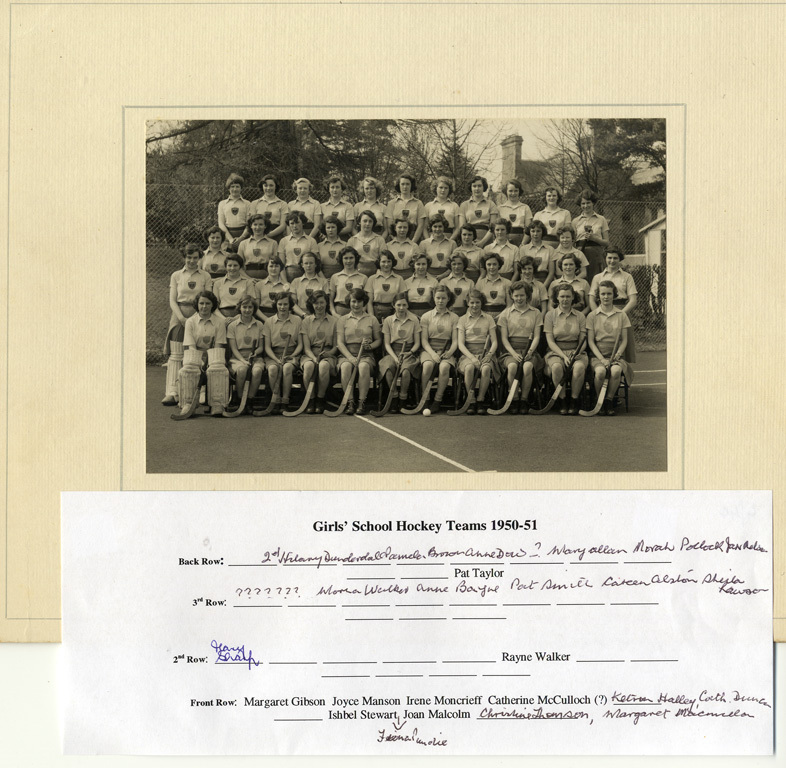 Girls' School Hockey Teams 1950-51
Back Row: 2nd Hilary Dunderdale Pamela Brown Anne Dow ? Mary Allan Morah Pollock
Pat Taylor
3rd Row: ? ? ? ? ? ? ? Morna Walker Anne Bayne Pat Smith Eileen Alston Sheila
2nd Row: Rayne Walker
Front Row: Margaret Gibson Joyce Manson Irene Moncrieff Catherine McCulloch (?) Halley, Cath. Duncan
Ishbel Stewart, Joan Malcolm Christine Thomson, Margaret